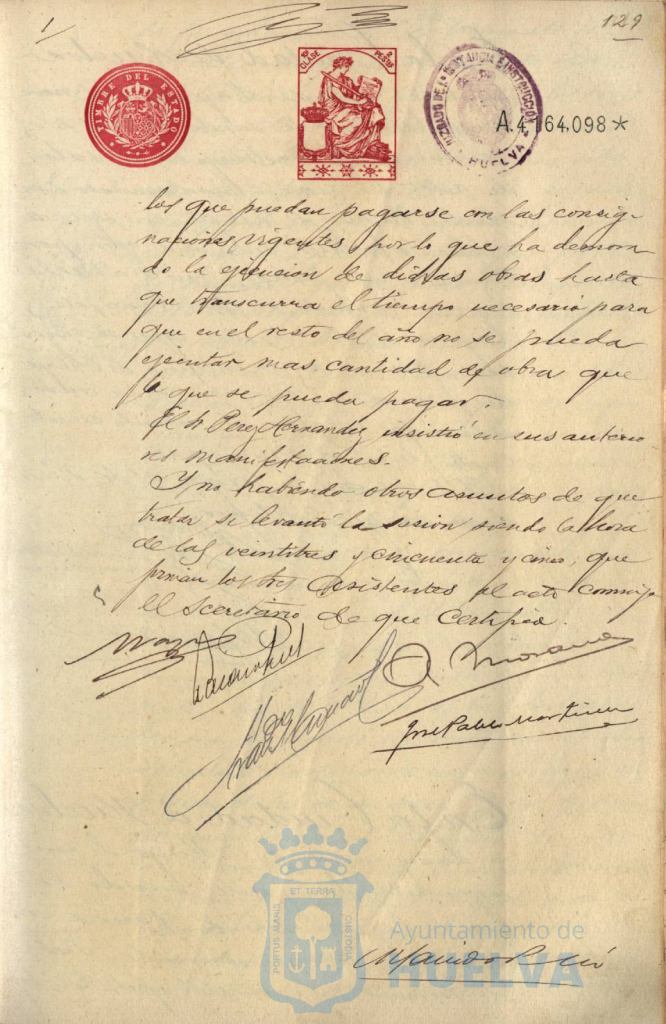 129
TIMBRE DEL ESTADO
CLASE
PESETAS
JUZGADO DE 1ª INSTANCIA E INSTRUCCIÓN
HUELVA
A.4.164.098*
los que puedan pagarse con las consig-
naciones vigentes por lo que ha demora
do la ejecucion de dichas obras hasta
que transcurra el tiempo necesario para
que en el resto del año no se pueda
ejecutar mas cantidad de obra que
la que se pueda pagar.
El Sr Perez Hernandez insistió en sus anterio
res manifestaciones.
Y no habiendo otros asuntos de que
tratar se levantó la sesion siendo la hora
de las veintitres y cincuenta y cinco, que
firman los tres asistentes al acto conmigo
el Secretario de que Certifico.
Moreno
José Pablo Martinez
PORTUS MARIS ET TERRA CUSTODIA
Ayuntamiento de
HUELVA